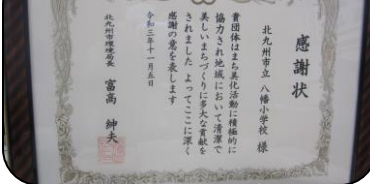 感謝状
北九州市立 八幡小学校 様
貴団体はまち美化活動に積極的に
協力され地域において清潔で
美しいまちづくりに多大な貢献を
されました よってここに深く
感謝の意を表します
令和三年十一月五日
北九州市環境局長 富高 紳夫